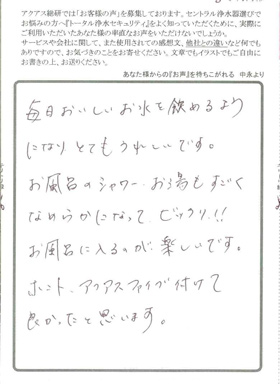 アクアス総研では「お客様の声」を募集しております。セントラル浄水器選びで
お悩みの方へ『トータル浄水セキュリティ』をよく知っていただくために、実際に
ご利用いただいたあなた様の率直なお声をいただけないでしょうか。
サービスや会社に関して、また使用されての感想文、他社との違いなど何でも
ありですので、お気づきのことをお寄せください。文章でもイラストでもご自由に
お書きの上、お送りください。
あなた様からの『お声』を待ちこがれる 中永より
毎日おいしいお水を飲めるよう
になり とてもうれしいです。
お風呂のシャワー・お湯もすごく
なめらかになって、ビックリ!!
お風呂に入るのが楽しいです。
ホント、アクアスファイブ付けて
良かったと思います。